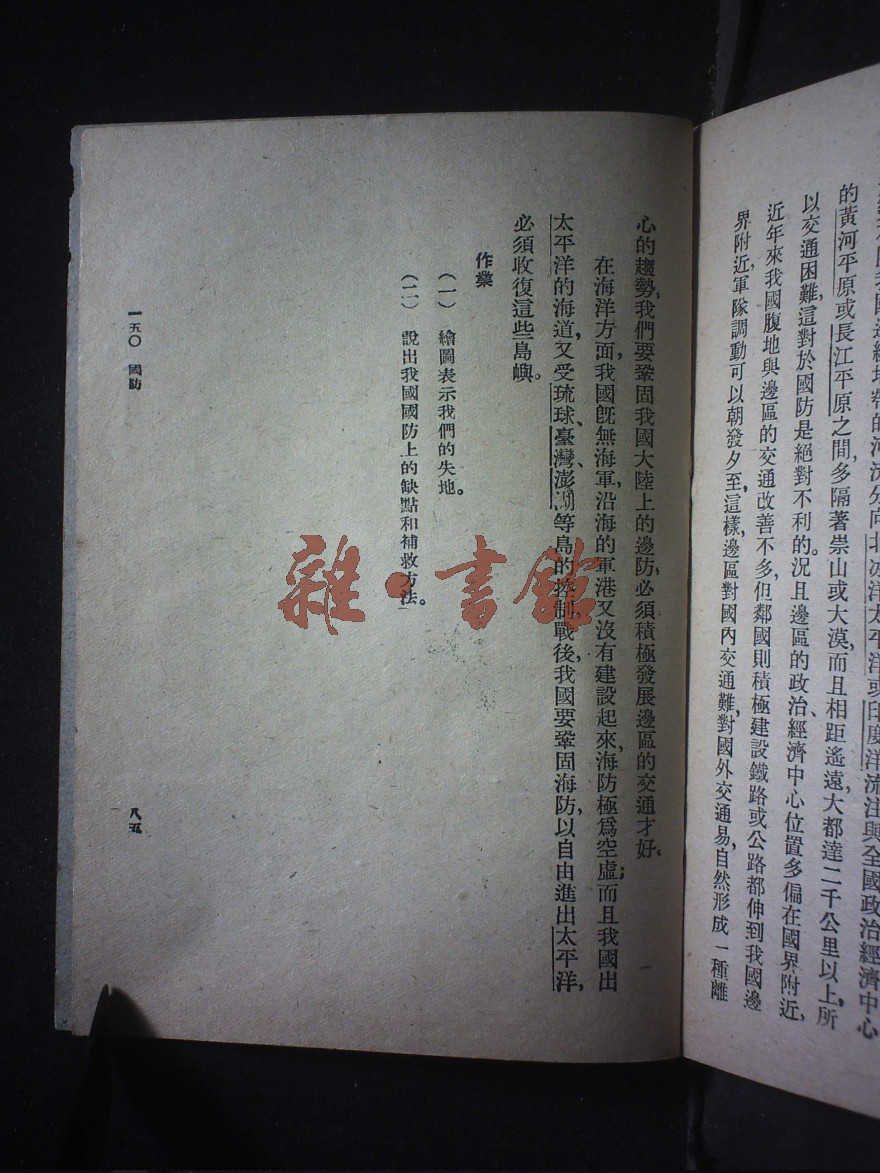 的黃河平原或長江平原之間，多隔著崇山或大漠，而且相距遙遠，大都達二千公里以上，所
以交通困難，這對於國防是絕對不利的。況且邊區的政治、經濟中心位置多偏在國界附近，
近年來我國腹地與邊區的交通改善不多，但鄰國則積極建設鐵路或公路都伸到我國邊
界附近，軍隊調動可以朝發夕至，這樣，邊區對國內交通難，對國外交通易，自然形成一種離
心的趨勢，我們要鞏固我國大陸上的邊防，必須積極發展邊區的交通才好、
在海洋方面，我國既無海軍，沿海的軍港又沒有建設起來，海防極爲空虛；而且我國出
太平洋的海道，又受琉球、臺灣、澎湖等島的控制，戰後，我國要鞏固海防，以自由進出太平洋，
必須收復這些島嶼。
作業
（一） 繪圖表示我們的失地。
（二） 說出我國國防上的缺點和補救方法。
一五〇 國防
八五
雜·書館